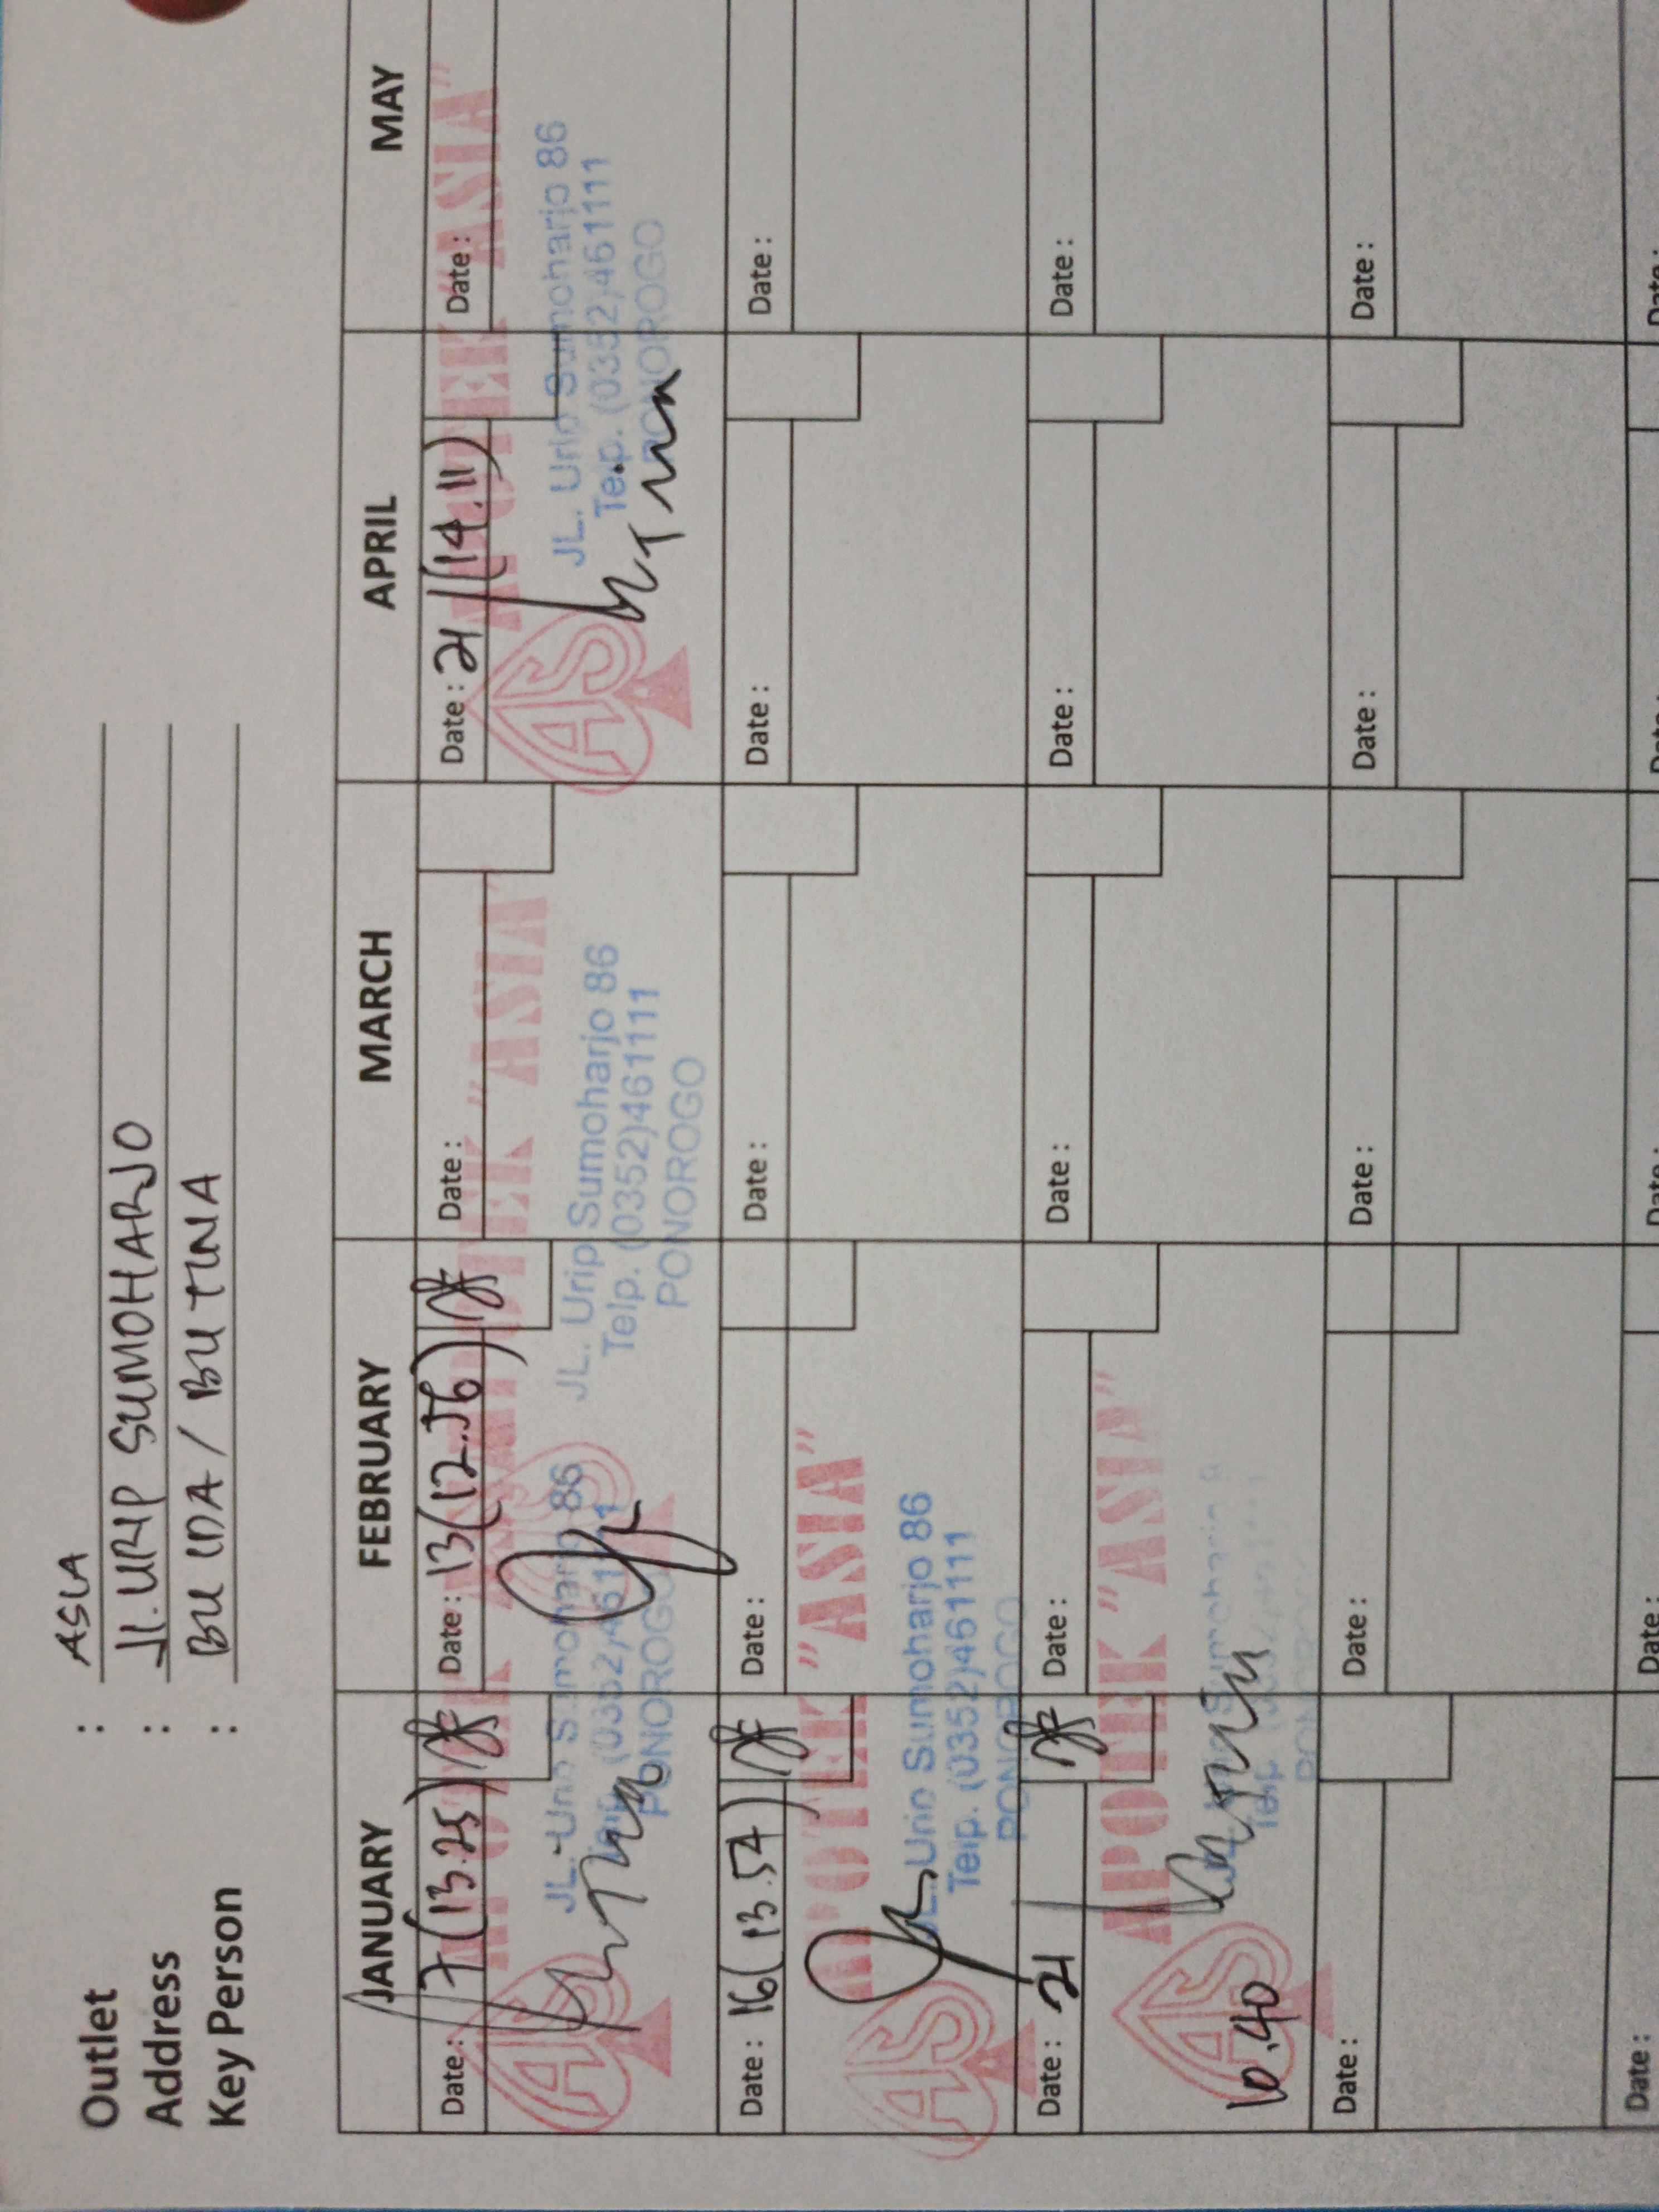 Outlet : ASIA
Address : Jl. URIP SUMOHARJO
Key Person : BU IDA / BU TINA
JANUARY FEBRUARY MARCH APRIL MAY
Date : 7 (13.25) Date : 13 (12.56) Date : Date : 21 (14.11) Date :
APOTEK "ASIA" APOTEK "ASIA" APOTEK "ASIA"
AS AS AS
JL. Urip Sumoharjo 86 JL. Urip Sumoharjo 86 JL. Urip Sumoharjo 86
Telp. (0352)461111 Telp. (0352)461111 Telp. (0352)461111
PONOROGO PONOROGO PONOROGO
Date : 16 (13.54) Date : Date : Date : Date :
APOTEK "ASIA"
AS
JL. Urip Sumoharjo 86
Telp. (0352)461111
PONOROGO
Date : 21 Date : Date : Date : Date :
APOTEK "ASIA"
AS
10.40
Date : Date : Date : Date : Date :
Date : Date : Date : Date : Date :